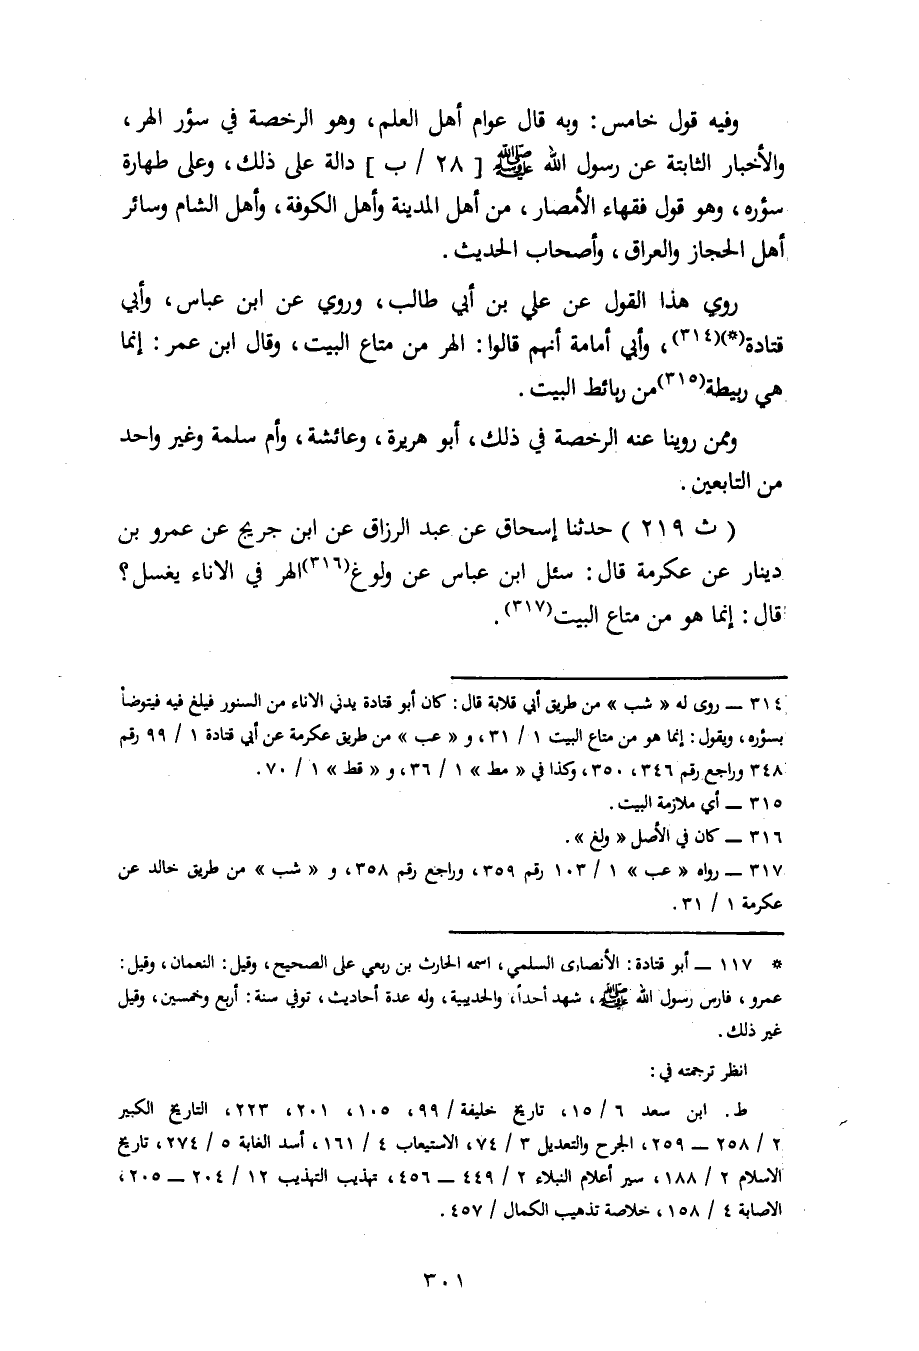 وفيه قول خامس : وبه قال عوام أهل العلم، وهو الرخصة في سؤر الهر ،
والأخبار الثابتة عن رسول الله ﷺ [ ٢٨ / ب ] دالة على ذلك، وعلى طهارة
سؤره، وهو قول فقهاء الأمصار، من أهل المدينة وأهل الكوفة، وأهل الشام وسائر
أهل الحجاز والعراق، وأصحاب الحديث .
روي هذا القول عن علي بن أبي طالب، وروي عن ابن عباس، وأبي
قتادة(*)(٣١٤)، وأبي أمامة أنهم قالوا : الهر من متاع البيت، وقال ابن عمر : إنما
هي ربيطة(٣١٥)من ربائط البيت .
وممن روينا عنه الرخصة في ذلك، أبو هريرة، وعائشة، وأم سلمة وغير واحد
من التابعين .
( ث ٢١٩ ) حدثنا إسحاق عن عبد الرزاق عن ابن جريج عن عمرو بن
دينار عن عكرمة قال : سئل ابن عباس عن ولوغ(٣١٦)الهر في الاناء يغسل؟
قال : إنما هو من متاع البيت(٣١٧).
٣١٤ ــ روى له « شب » من طريق أبي قلابة قال : كان أبو قتادة يدني الاناء من السنور فيلغ فيه فيتوضأ
بسؤره، ويقول : إنما هو من متاع البيت ١ / ٣١، و « عب » من طريق عكرمة عن أبي قتادة ١ / ٩٩ رقم
٣٤٨ وراجع رقم ٣٤٦، ٣٥٠، وكذا في « مط » ١ / ٣٦، و « قط » ١ / ٧٠.
٣١٥ ــ أي ملازمة البيت .
٣١٦ ــ كان في الأصل « ولغ ».
٣١٧ ــ رواه « عب » ١ / ١٠٣ رقم ٣٥٩، وراجع رقم ٣٥٨، و « شب » من طريق خالد عن
عكرمة ١ / ٣١.
* ١١٧ ــ أبو قتادة : الأنصارى السلمي، اسمه الحارث بن ربعي على الصحيح، وقيل : النعمان، وقيل :
عمرو، فارس رسول الله ﷺ، شهد أحداً، والحديبية، وله عدة أحاديث، توفي سنة : أربع وخمسين، وقيل
غير ذلك.
انظر ترجمته في :
ط. ابن سعد ٦ / ١٥، تاريخ خليفة / ٩٩، ١٠٥، ٢٠١، ٢٢٣، التاريخ الكبير
٢ / ٢٥٨ ــ ٢٥٩، الجرح والتعديل ٣ / ٧٤، الاستيعاب ٤ / ١٦١، أسد الغابة ٥ / ٢٧٤، تاريخ
الاسلام ٢ / ١٨٨، سير أعلام النبلاء ٢ / ٤٤٩ ــ ٤٥٦، تهذيب التهذيب ١٢ / ٢٠٤ ــ ٢٠٥،
الاصابة ٤ / ١٥٨، خلاصة تذهيب الكمال / ٤٥٧.
٣٠١